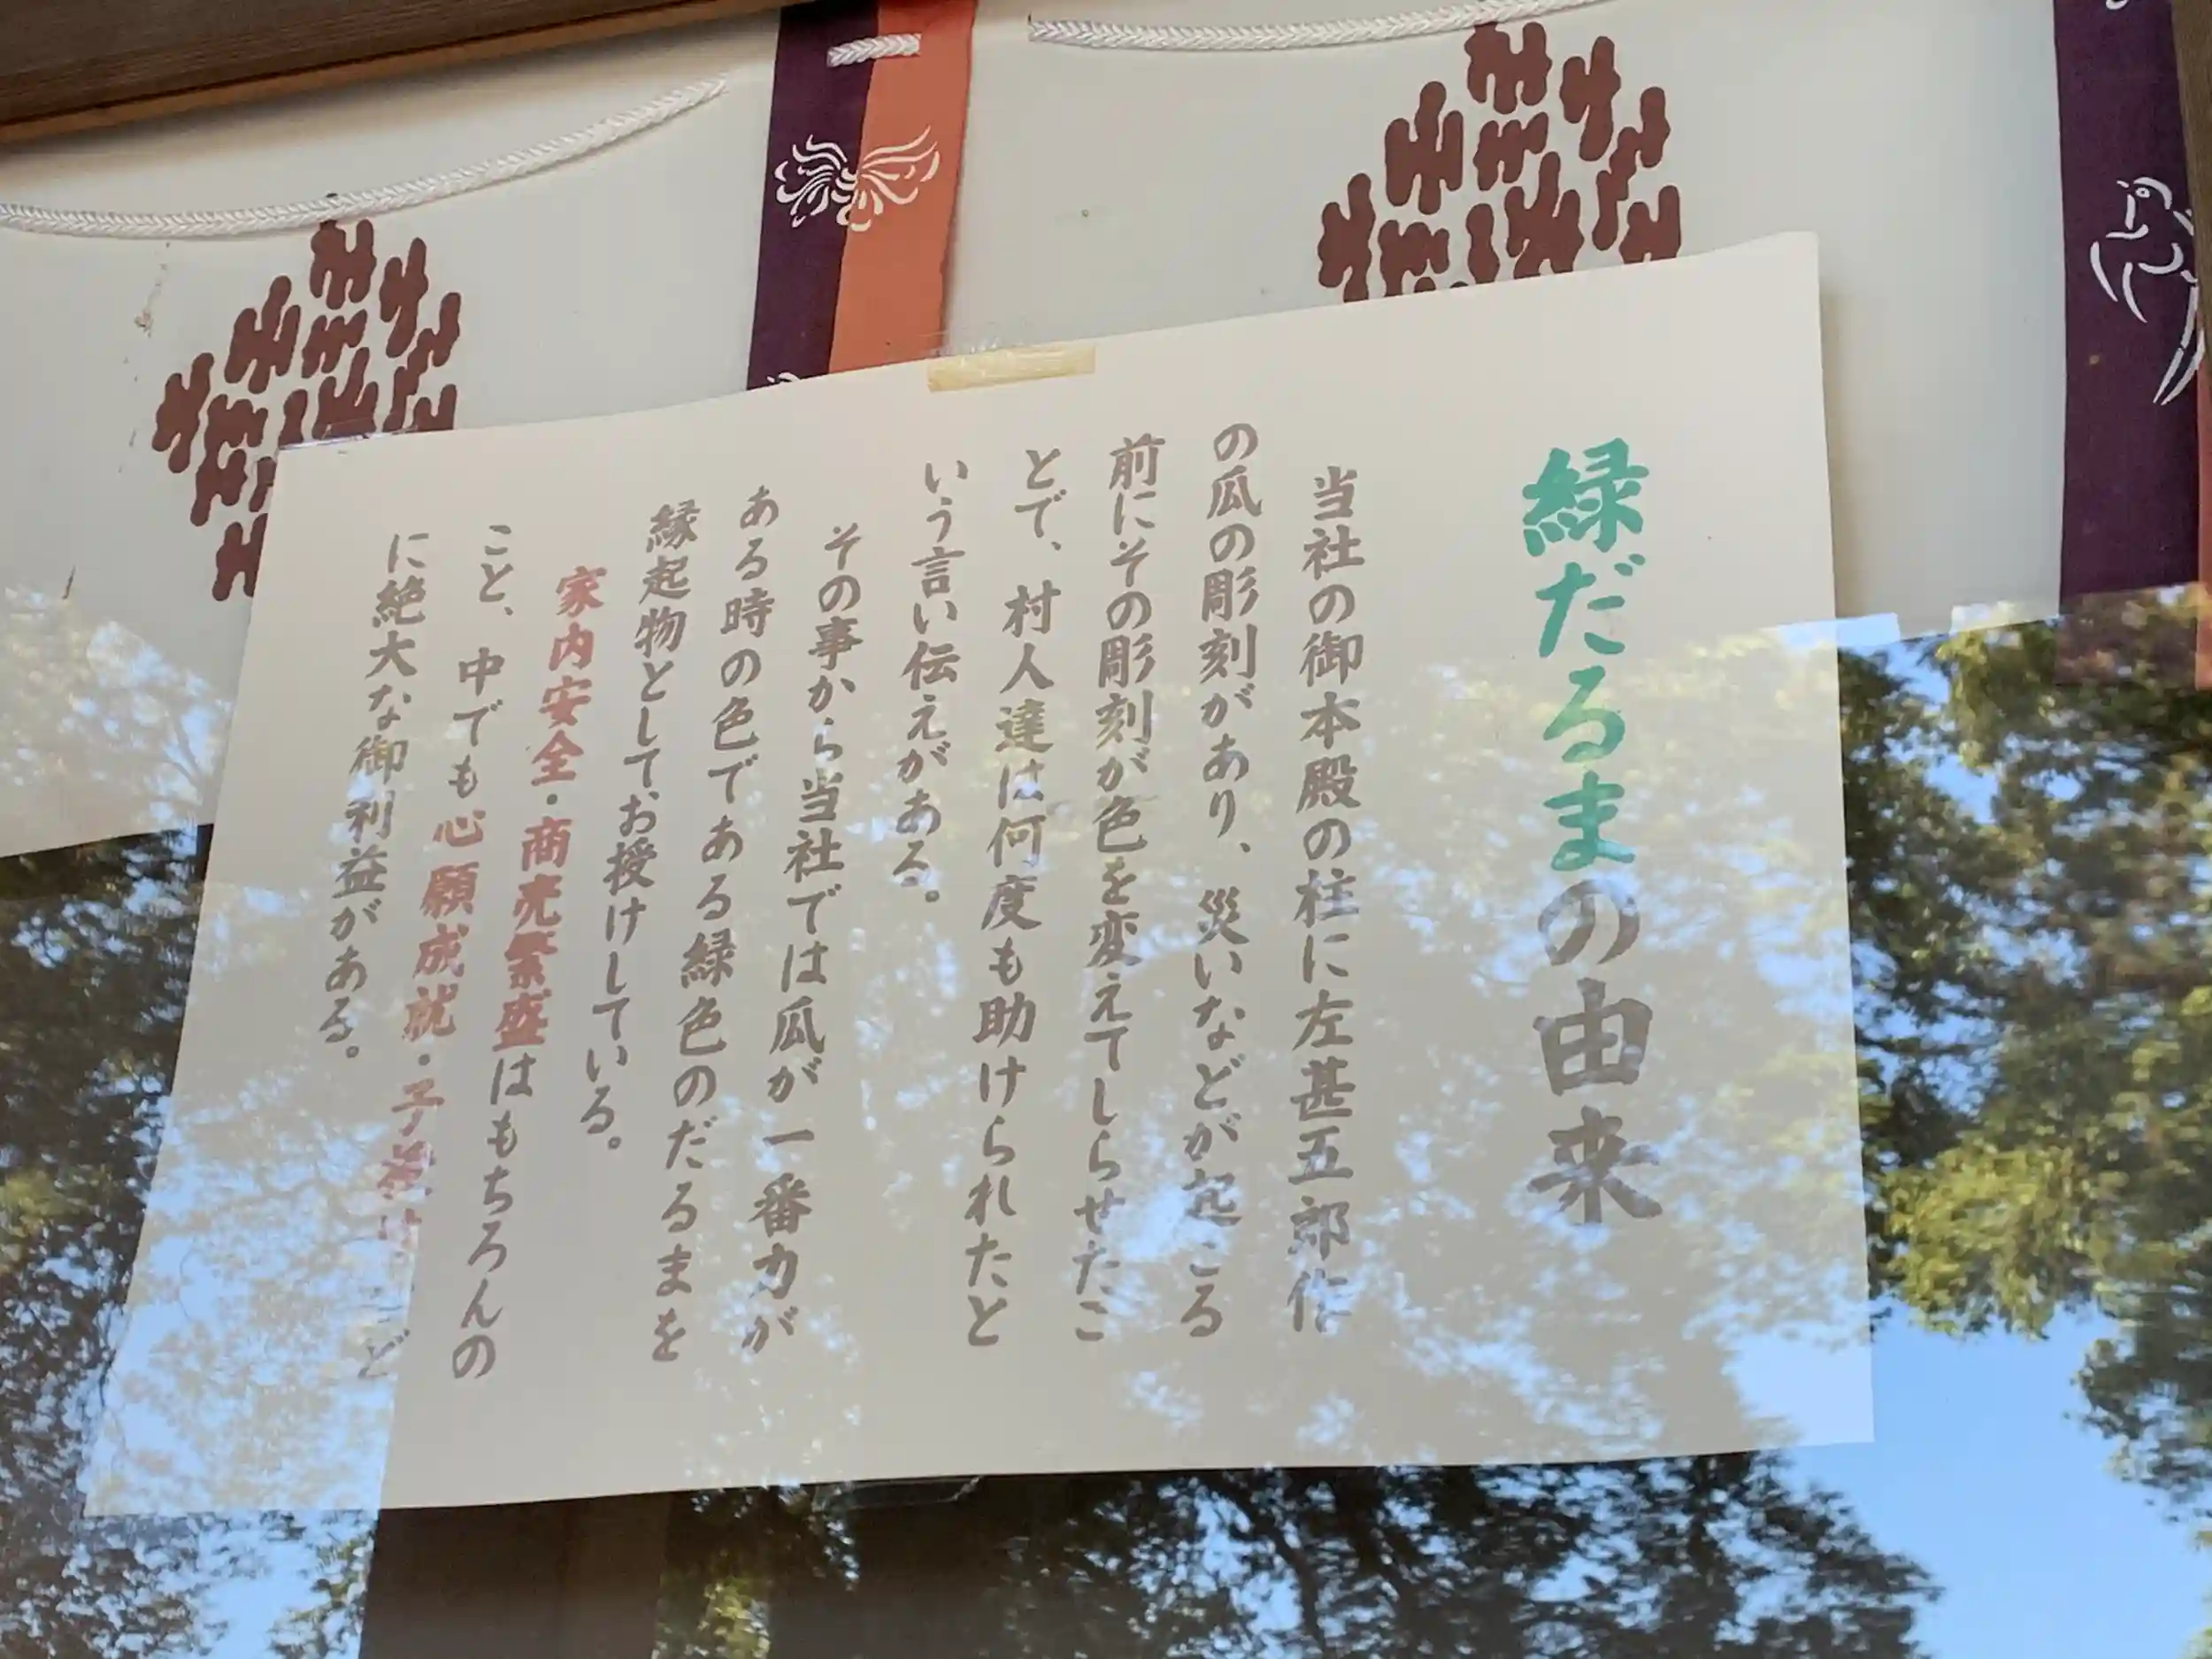 緑だるまの由来
当社の御本殿の柱に左甚五郎作
の瓜の彫刻があり、災いなどが起こる
前にその彫刻が色を変えてしらせたこ
とで、村人達は何度も助けられたと
いう言い伝えがある。
その事から当社では瓜が一番力が
ある時の色である緑色のだるまを
縁起物として、お授けしている。
家内安全・商売繁盛はもちろんの
こと、中でも心願成就・子授けど
に絶大な御利益がある。